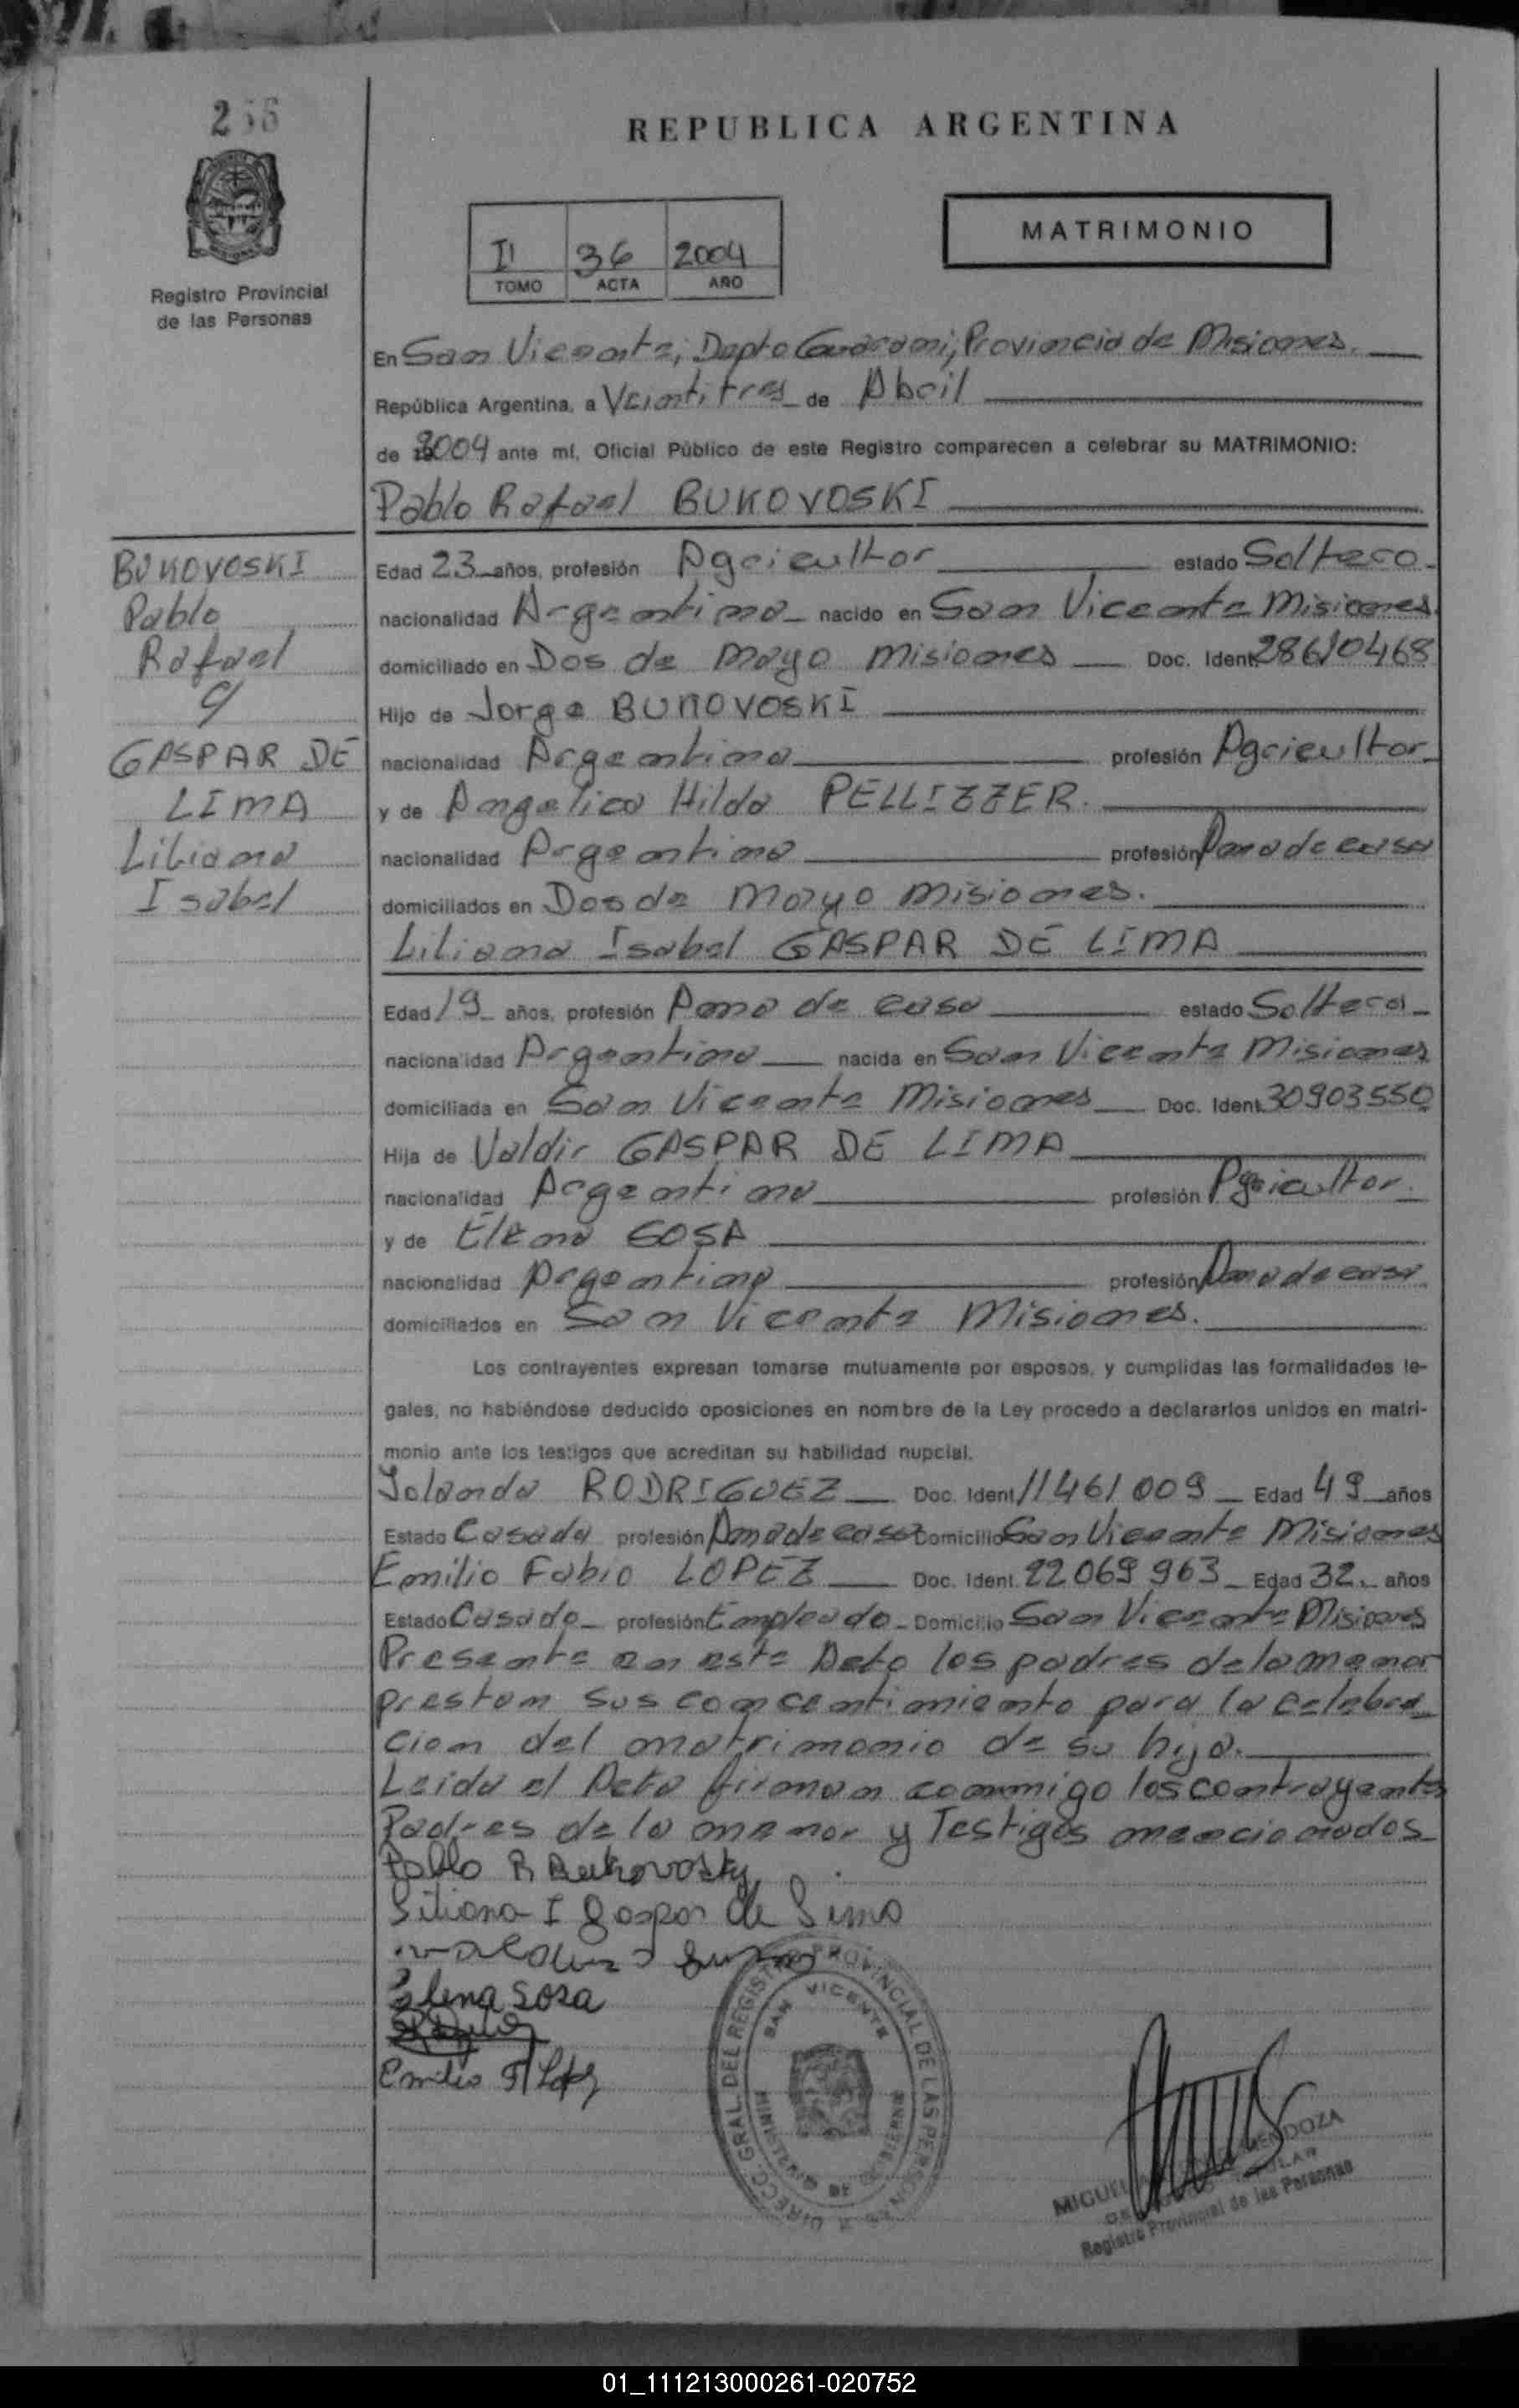 REPUBLICA ARGENTINA
Registro Provincial
de las Personas
II 36 2004
TOMO ACTA AÑO
MATRIMONIO
En San Vicente, Depto Guaraní, Provincia de Misiones.
República Argentina, a Veintitres de Abril
de 2004 ante mí, Oficial Público de este Registro comparecen a celebrar su MATRIMONIO:
Pablo Rafael BUKOVOSKI
BUKOVOSKI
Pablo
Rafael
c/
GASPAR DE
LIMA
Liliana
Isabel
Edad 23 años, profesión Agricultor estado Soltero
nacionalidad Argentina nacido en San Vicente Misiones
domiciliado en Dos de Mayo Misiones Doc. Ident. 28610468
Hijo de Jorge BUKOVOSKI
nacionalidad Argentina profesión Agricultor
y de Angelica Hilda PELLIZZER.
nacionalidad Argentina profesión Ama de casa
domiciliados en Dos de Mayo Misiones.
Liliana Isabel GASPAR DE LIMA
Edad 19 años, profesión Ama de casa estado Soltera
nacionalidad Argentina nacida en San Vicente Misiones
domiciliada en San Vicente Misiones Doc. Ident. 30903550
Hija de Valdir GASPAR DE LIMA
nacionalidad Argentina profesión Agricultor.
y de Elena SOSA
nacionalidad Argentina profesión Ama de casa
domiciliados en San Vicente Misiones.
Los contrayentes expresan tomarse mutuamente por esposos, y cumplidas las formalidades le-
gales, no habiéndose deducido oposiciones en nombre de la Ley procedo a declararlos unidos en matri-
monio ante los testigos que acreditan su habilidad nupcial.
Yolanda RODRIGUEZ Doc. Ident. 11461009 Edad 49 años
Estado Casada profesión Ama de casa Domicilio San Vicente Misiones
Emilio Fabio LOPEZ Doc. Ident. 22069963 Edad 32 años
Estado Casado profesión Empleado Domicilio San Vicente Misiones
Presente en este Acto los padres de la menor
prestan sus concentimiento para la celebra
cion del matrimonio de su hija.
Leida el Acta firman conmigo los contrayentes
Padres de la menor y Testigos mencionados
Pablo R Bukovosky
Liliana I Gaspar de Lima
Elena Sosa
Emilio F Lopez
DIRECC. GRAL. DEL REGISTRO PROVINCIAL DE LAS PERSONAS
SAN VICENTE
MINISTERIO DE GOBIERNO
MIGUEL MENDOZA
Registro Provincial de las Personas
01_111213000261-020752